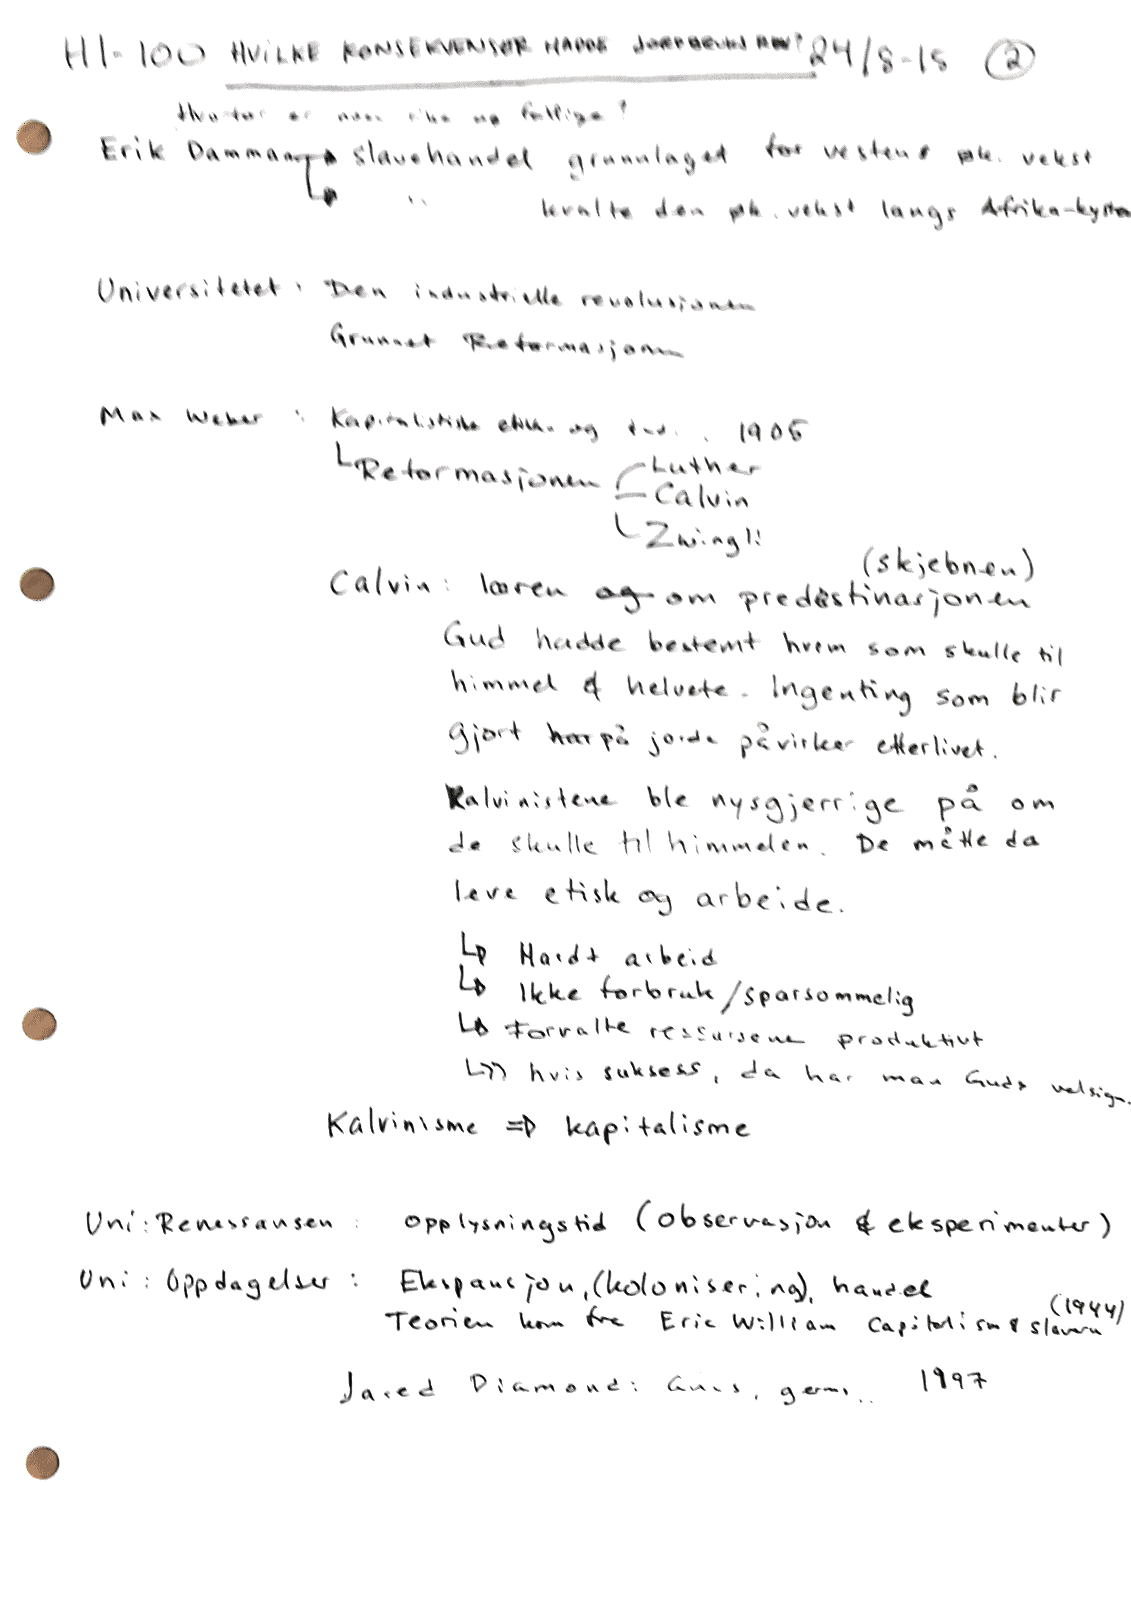 HI-100 HVILKE KONSEKVENSER HADDE JORDBRUKS REV? 24/8-15 2
Hvorfor er noen rike og fattige?
Erik Damman → slavehandel grunnlaget for vestens øk. vekst
↳ " kvalte den øk. vekst langs Afrika-kysten
Universitetet: Den industrielle revolusjonen
Grunnet Reformasjonen
Max Weber: Kapitalistiske etikk og 1905
↳ Reformasjonen Luther
Calvin
Zwingli
(skjebnen)
Calvin: læren og om predestinasjonen
Gud hadde bestemt hvem som skulle til
himmel & helvete. Ingenting som blir
gjort her på jorda påvirker etterlivet.
Kalvinistene ble nysgjerrige på om
de skulle til himmelen. De måtte da
leve etisk og arbeide.
↳ Hardt arbeid
↳ Ikke forbruk/sparsommelig
↳ Forvalte ressursene produktivt
↳ hvis suksess, da har man Guds velsign.
Kalvinisme ⇒ kapitalisme
Uni: Renessansen: Opplysningstid (observasjon & eksperimenter)
Uni: Oppdagelser: Ekspansjon, (kolonisering), handel
Teorien kom fra Eric William Capitalism & slavery (1944)
Jared Diamond: Guns, germs.. 1997